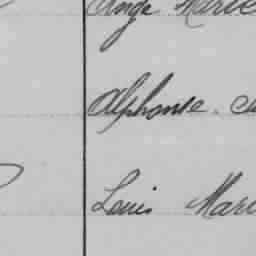 Ange Marie
Alphonse
Louis Mari